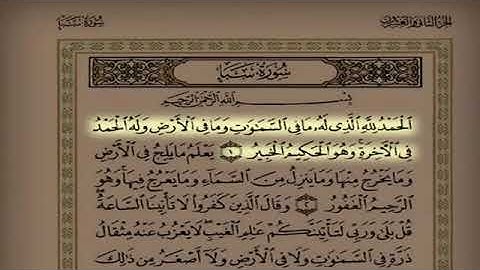 سُورَةُ سَبَإٍ
الجزء الثاني والعشرون
سُورَةُ سَبَإٍ
بِسْمِ اللَّهِ الرَّحْمَٰنِ الرَّحِيمِ
الْحَمْدُ لِلَّهِ الَّذِي لَهُ مَا فِي السَّمَٰوَٰتِ وَمَا فِي الْأَرْضِ وَلَهُ الْحَمْدُ
فِي الْآخِرَةِ وَهُوَ الْحَكِيمُ الْخَبِيرُ ١ يَعْلَمُ مَا يَلِجُ فِي الْأَرْضِ
وَمَا يَخْرُجُ مِنْهَا وَمَا يَنزِلُ مِنَ السَّمَآءِ وَمَا يَعْرُجُ فِيهَا وَهُوَ
الرَّحِيمُ الْغَفُورُ ٢ وَقَالَ الَّذِينَ كَفَرُوا لَا تَأْتِينَا السَّاعَةُ
قُلْ بَلَىٰ وَرَبِّي لَتَأْتِيَنَّكُمْ عَٰلِمِ الْغَيْبِ لَا يَعْزُبُ عَنْهُ مِثْقَالُ
ذَرَّةٍ فِي السَّمَٰوَٰتِ وَلَا فِي الْأَرْضِ وَلَا أَصْغَرُ مِن ذَٰلِكَ